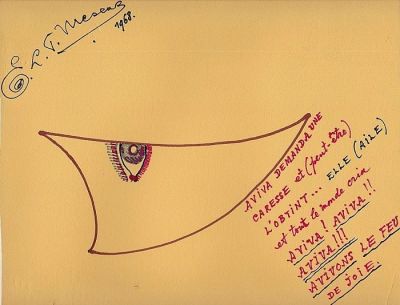 E. L. T. Mesens
1968.
AVIVA DEMANDA UNE
CARESSE et (peut-être)
L'OBTINT... ELLE (AILE)
et tout le monde cria
AVIVA! AVIVA!!
AVIVA!!!
AVIVONS LE FEU
DE JOIE.